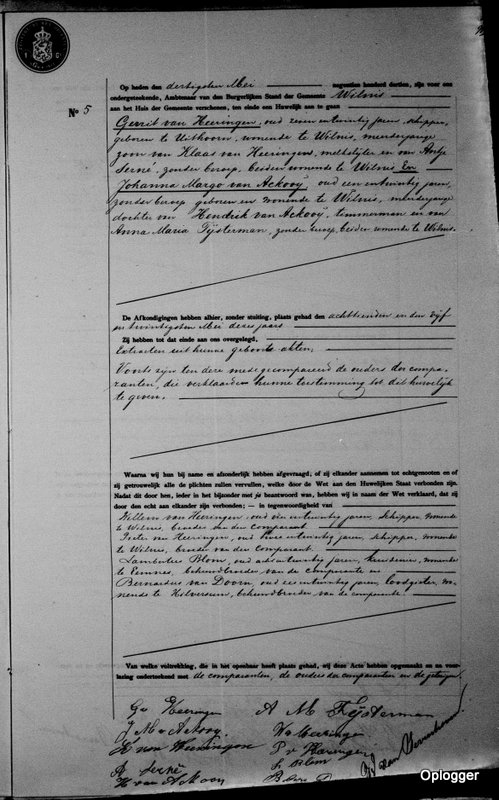 No 5
Op heden den dertigsten Mei negentien honderd dertien, zijn voor ons
ondergeteekende, Ambtenaar van den Burgerlijken Stand der Gemeente Wilnis
aan het Huis der Gemeente verschenen, ten einde een Huwelijk aan te gaan
Gerrit van Heeringen, oud zeven en twintig jaren, schipper,
geboren te Uithoorn, wonende te Wilnis, meerderjarige
zoon van Klaas van Heeringen, melkslijter en van Antje
Serné, zonder beroep, beiden wonende te Wilnis En
Johanna Margo van Ackooÿ, oud een en twintig jaren,
zonder beroep geboren en wonende te Wilnis, meerderjarige
dochter van Hendrik van Ackooÿ, timmerman en van
Anna Maria Fÿsterman, zonder beroep, beiden wonende te Wilnis.
De Afkondigingen hebben alhier, zonder stuiting, plaats gehad den achttienden en den vijf
en twintigsten Mei dezes jaars
Zij hebben tot dat einde aan ons overgelegd,
Extracten uit hunne geboorte akten,
Voorts zijn ten deze mede gecompareerd de ouders der compa-
ranten, die verklaarden hunne toestemming tot dit huwelijk
te geven.
Waarna wij hun bij name en afzonderlijk hebben afgevraagd, of zij elkander aannemen tot echtgenooten en of
zij getrouwelijk alle de plichten zullen vervullen, welke door de Wet aan den Huwelijken Staat verbonden zijn.
Nadat dit door hen, ieder in het bijzonder met ja beantwoord was, hebben wij in naam der Wet verklaard, dat zij
door den echt aan elkander zijn verbonden; — in tegenwoordigheid van
Willem van Heeringen, oud vier en twintig jaren, schipper, wonende
te Wilnis, broeder van den comparant
Pieter van Heeringen, oud twee en twintig jaren, schipper, wonende
te Wilnis, broeder van den comparant.
Lambertus Blom, oud acht en twintig jaren, wonende
te Eemnes, behuwdbroeder van de comparante en
Bernardus van Doorn, oud zes en twintig jaren, loodgieter, wo-
nende te Hilversum, behuwdbroeder van de comparante
Van welke voltrekking, die in het openbaar heeft plaats gehad, wij deze Acte hebben opgemaakt en na voor-
lezing onderteekend met de comparanten, de ouders der comparanten en de getuigen.
G v Heeringen
A M Fÿsterman
J M v Ackooy
W v Heeringen
K van Heeringen
P v Heeringen
A Serné
L Blom
H van Ackooy
Oplogger